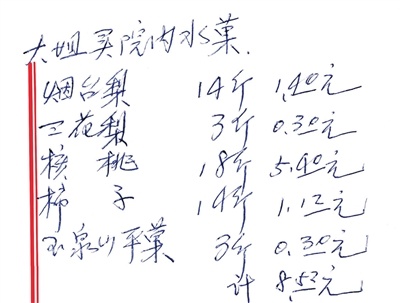 大姐买院内水菓.
烟台梨 14斤 1.40元
三花梨 3斤 0.30元
核桃 18斤 5.40元
柿子 14斤 1.12元
玉泉山平菓 3斤 0.30元
计 8.52元